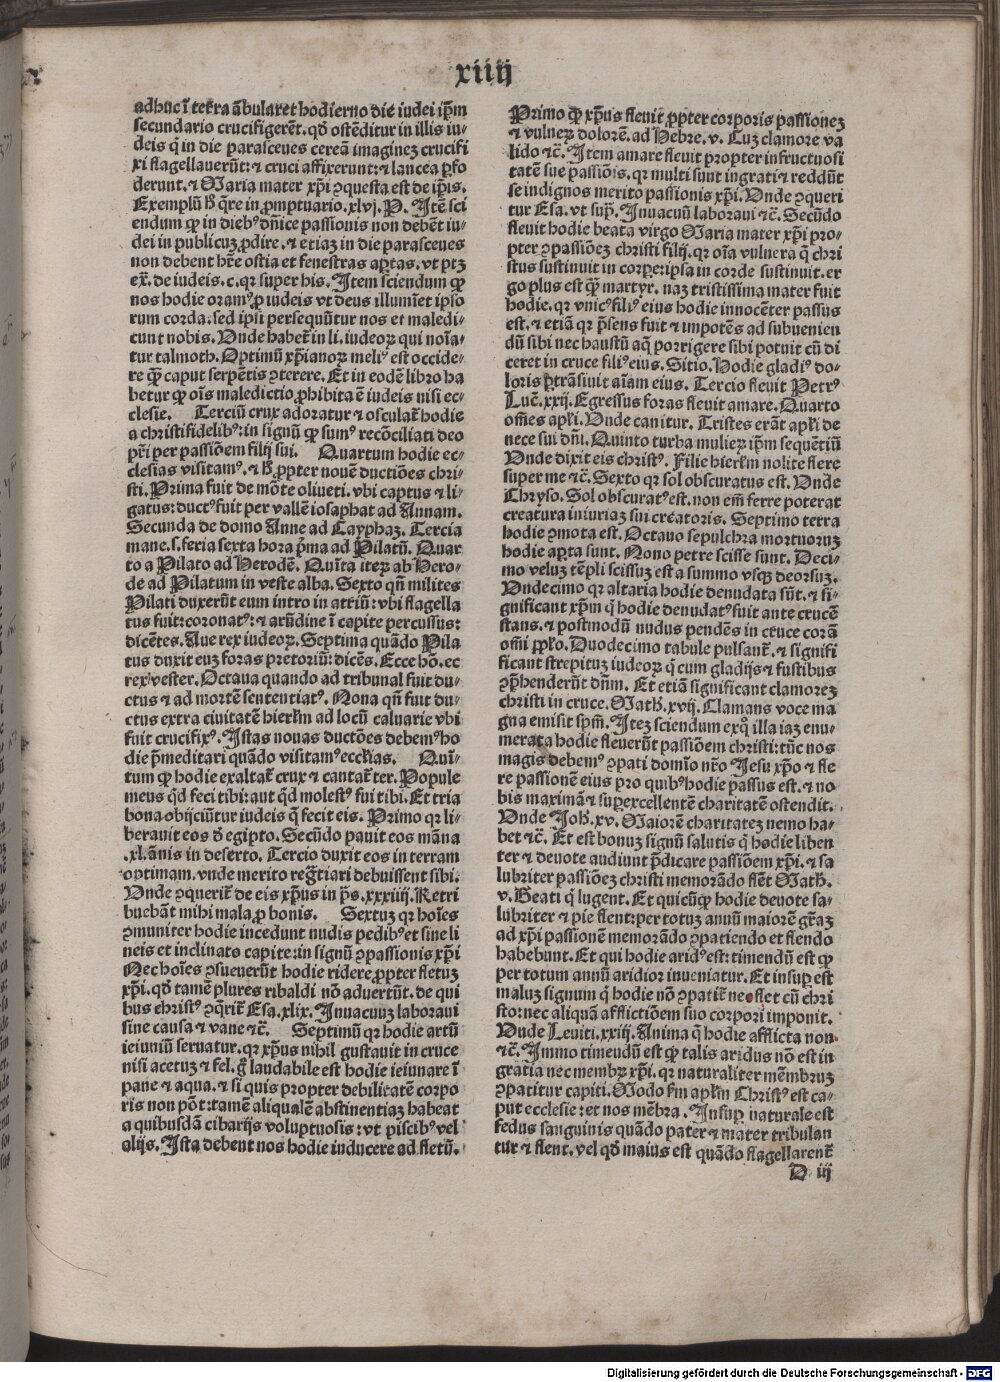 xiiij
adhuc ī terra ābularet hodierno die iudei ip̄m
secundario crucifigerēt. qd̄ ostēditur in illis iu⸗
deis q̄ in die parasceues cereā imaginez crucifi
xi flagellauerūt: ⁊ cruci affixerunt: ⁊ lancea ꝑfo
derunt. ⁊ Maria mater xp̄i ꝯquesta est de ip̄is.
Exemplū hꝰ q̄re in ꝓmptuario. xlvj. P. Itē sci
endum ꝙ in diebꝰ dn̄ice passionis non debēt iu⸗
dei in publicuꝫ ꝓdire. ⁊ etiaꝫ in die parasceues
non debent hr̄e ostia et fenestras aꝑtas. vt ptꝫ
ex̄. de iudeis. c. qr super his. Item sciendum ꝙ
nos hodie oramꝰ ꝓ iudeis vt deus illumīet ipso
rum corda. sed ipsi persequūtur nos et maledi⸗
cunt nobis. Unde habet̄ in li. iudeoꝝ qui noīa⸗
tur talmoth. Optimū xp̄ianoꝝ meliꝰ est occide⸗
re ꝙ̄ caput serpētis ꝯterere. Et in eodē libro ha
betur ꝙ oīs maledictio ꝓhibita ē iudeis nisi ec⸗
clesie. Terciū crux adoratur ⁊ osculat̄ hodie
a christifidelibꝰ: in signū ꝙ sumꝰ recōciliati deo
pr̄i per passiōem filij sui. Quartum hodie ec⸗
clesias visitamꝰ. ⁊ hꝰ ꝓpter nouē ductiōes chri⸗
sti. Prima fuit de mōte oliueti. vbi captus ⁊ li⸗
gatus: ductꝰ fuit per vallē iosaphat ad Annam.
Secunda de domo Anne ad Cayphaꝫ. Tercia
mane. s. feria sexta hora p̄ma ad Pilatū. Quar
to a Pilato ad Herodē. Quīta iteꝝ ab Hero⸗
de ad Pilatum in veste alba. Sexto qn̄ milites
Pilati duxerūt eum intro in atriū: vbi flagella
tus fuit: coronatꝰ: ⁊ arūdine ī capite percussus:
dicētes. Aue rex iudeoꝝ. Septima quādo Pila
tus duxit euꝫ foras pretoriū: dicēs. Ecce hō. ec
rex vester. Octaua quando ad tribunal fuit du⸗
ctus ⁊ ad mortē sententiatꝰ. Nona qn̄ fuit du⸗
ctus extra ciuitatē hierl̄m ad locū caluarie vbi
fuit crucifixꝰ. Istas nouas ductōes debemꝰ ho
die p̄meditari quādo visitamꝰ eccl̄ias. Quī⸗
tum ꝙ hodie exaltat̄ crux ⁊ cantat̄ ter. Popule
meus qd̄ feci tibi: aut qd̄ molestꝰ fui tibi. Et tria
bona obijciūtur iudeis q̄ fecit eis. Primo qr li⸗
berauit eos d̄ egipto. Secūdo pauit eos māna
.xl. ānis in deserto. Tercio duxit eos in terram
optimam. vnde merito regr̄tiari debuissent sibi.
Unde ꝯquerit̄ de eis xp̄us in ps̄. xxxiiij. Retri
buebāt mihi mala ꝓ bonis. Sextuꝫ qr hoīes
ꝯmuniter hodie incedunt nudis pedibꝰ et sine li
neis et inclinato capite: in signū ꝯpassionis xp̄i
Nec hoīes ꝯsueuerūt hodie ridere ꝓpter fletuꝫ
xp̄i. qd̄ tamē plures ribaldi nō aduertūt. de qui
bus christꝰ ꝯq̄rit̄ Esa. xlix. Inuacuuꝫ laboraui
sine causa ⁊ vane ⁊c̄. Septimū qr hodie artū
ieiuniū seruatur. qr xp̄us nihil gustauit in cruce
nisi acetuꝫ ⁊ fel. g̊ laudabile est hodie ieiunare ī
pane ⁊ aqua. ⁊ si quis propter debilitatē corpo
ris non pōt: tamē aliqualē abstinentiaꝫ habeat
a quibusdā cibarijs voluptuosis: vt piscibꝰ vel
alijs. Ista debent nos hodie inducere ad fletū.
Primo ꝙ xp̄us fleuit ꝓpter corporis passionez
⁊ vulneꝝ dolorē. ad Hebre. v. Cuꝫ clamore va
lido ⁊c̄. Item amare fleuit propter infructuosi
tatē sue passiōis. qr multi sunt ingrati ⁊ reddūt
se indignos merito passionis xp̄i. Unde ꝯqueri
tur Esa. vt supͣ. Inuacuū laboraui ⁊c̄. Secūdo
fleuit hodie beata virgo Maria mater xp̄i pro⸗
pter ꝯpassiōeꝫ christi filij. qr oīa vulnera q̄ chri
stus sustinuit in corpe: ipsa in corde sustinuit. er
go plus est qͣ martyr. naꝫ tristissima mater fuit
hodie. qr vnicꝰ filiꝰ eius hodie innocēter passus
est. ⁊ etiā qr p̄sens fuit ⁊ impotēs ad subuenien
dū sibi nec haustū aq̄ porrigere sibi potuit cū di
ceret in cruce filiꝰ eius. Sitio. Hodie gladiꝰ do⸗
loris ꝑtrāsiuit aīam eius. Tercio fleuit Petrꝰ
Luc̄. xxij. Egressus foras fleuit amare. Quarto
om̄es apl̄i. Unde canitur. Tristes erāt apl̄i de
nece sui dn̄i. Quinto turba mulieꝝ ip̄m sequētiū
Unde dixit eis christꝰ. Filie hierl̄m nolite flere
super me ⁊c̄. Sexto qr sol obscuratus est. Unde
Chryso. Sol obscuratꝰ est. non em̄ ferre poterat
creatura iniuriaꝫ sui creatoris. Septimo terra
hodie ꝯmota est. Octauo sepulchra mortuoruꝫ
hodie aꝑta sunt. Nono petre scisse sunt. Deci⸗
mo veluꝫ tēpli scissuꝫ est a summo vsqꝫ deorsuꝫ.
Undecimo qr altaria hodie denudata sūt. ⁊ si⸗
gnificant xp̄m q̄ hodie denudatꝰ fuit ante crucē
stans. ⁊ postmodū nudus pendēs in cruce corā
om̄i pp̄lo. Duodecimo tabule pulsant̄. ⁊ signifi
ficant strepituꝫ iudeoꝝ q̄ cum gladijs ⁊ fustibus
ꝯp̄henderūt dn̄m. Et etiā significant clamoreꝫ
christi in cruce. Math̄. xvij. Clamans voce ma
gna emisit spm̄. Iteꝫ sciendum exq̊ illa iaꝫ enu⸗
merata hodie fleuerūt passiōem christi: tūc nos
magis debemꝰ ꝯpati domīo nr̄o Iesu xp̄o ⁊ fle
re passionē eius pro quibꝰ hodie passus est. ⁊ no
bis maximā ⁊ suꝑexcellentē charitatē ostendit.
Unde Joh̄. xv. Maiorē charitateꝫ nemo ha⸗
bet ⁊c̄. Et est bonuꝫ signū salutis q̄ hodie liben
ter ⁊ deuote audiunt p̄dicare passiōem xp̄i. ⁊ sa
lubriter passiōeꝫ christi memorādo flēt Math̄.
v. Beati q̄ lugent. Et quicūqꝫ hodie deuote sa⸗
lubriter ⁊ pie flent: per totuꝫ annū maiorē gr̄aꝫ
ad xp̄i passionē memorādo ꝯpatiendo et flendo
habebunt. Et qui hodie aridꝰ est: timendū est ꝙ
per totum annū aridior inueniatur. Et insuꝑ est
maluꝫ signum q̄ hodie nō ꝯpatit̄ nec flet cū chri
sto: nec aliquā afflictiōem suo corpori imponit.
Unde Leuiti. xxiij. Anima q̄ hodie afflicta non
⁊c̄. Immo timendū est ꝙ talis aridus nō est in
gratia nec membꝝ xp̄i. qr naturaliter mēmbruꝫ
ꝯpatitur capiti. Modo km̄ apl̄m Christꝰ est ca⸗
put ecclesie: et nos mēbra. Insuꝑ naturale est
fedus sanguinis quādo pater ⁊ mater tribulan
tur ⁊ flent. vel qd̄ maius est quādo flagellarent̄
D iij
Digitalisierung gefördert durch die Deutsche Forschungsgemeinschaft - DFG